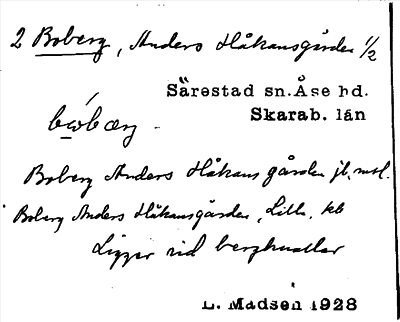 2 Boberg, Anders Håkansgården 1/2
Särestad sn. Åse hd.
Skarab. län
Boberg Anders Håkans gården jb. mtl.
Boberg Anders Håkansgården, Lilla, kb
Ligger vid berghällar
L. Madsén 1928